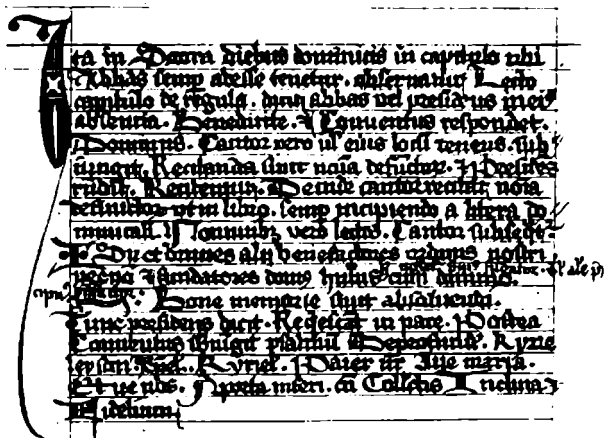 Ita in Datia diebus dominicis in capitulo ubi
Abbas semp adesse tenetur. observatur Lecto
capitulo de regula. dicit abbas vel presidens in ei
absentia. Benedicite. Et Conventus respondet.
Dominus. Cantor vero vl eius locū tenens. sub
iungit. Recitanda sunt noīa defūctor. Presidēs
rñdit. Recitentur. Deinde cantor recitat noīa
defunctor ut in libro. semp incipiendo a litera do
minicali. Nominibz vero lectis. Cantor subiect
Et omnes alii benefactores ordinis nostri
necnō Et fundatores domus
Bone memorie sunt absoluendi.
Tunc presidens dicit. Requiescāt in pace. Postea
Conventus iungit psalmū Deprofundis. Kyrie
eyson. Kyriel. Pater nr. Ave maria.
Et ne nos. A porta inferi. cū Collectis Inclina Et
Fidelium